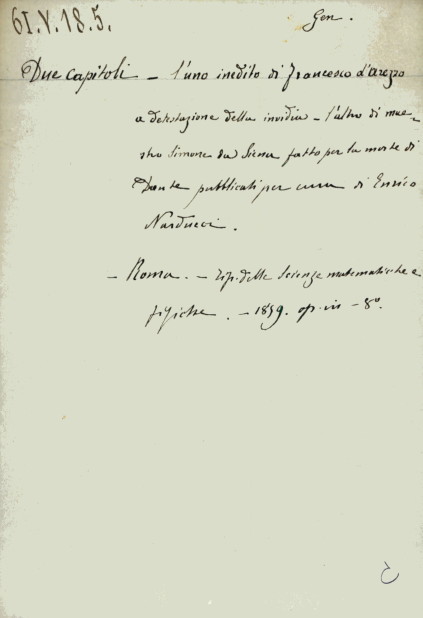 61.V.18.5.
Gen.
Due capitoli – l'uno inedito di Francesco d'Arezzo
a detestazione della invidia – l'altro di mae-
stro Simone da Siena fatto per la morte di
Dante pubblicati per cura di Enrico
Narducci.
– Roma. – tip. delle Scienze matematiche e
fisiche. – 1859. op. in – 8º.